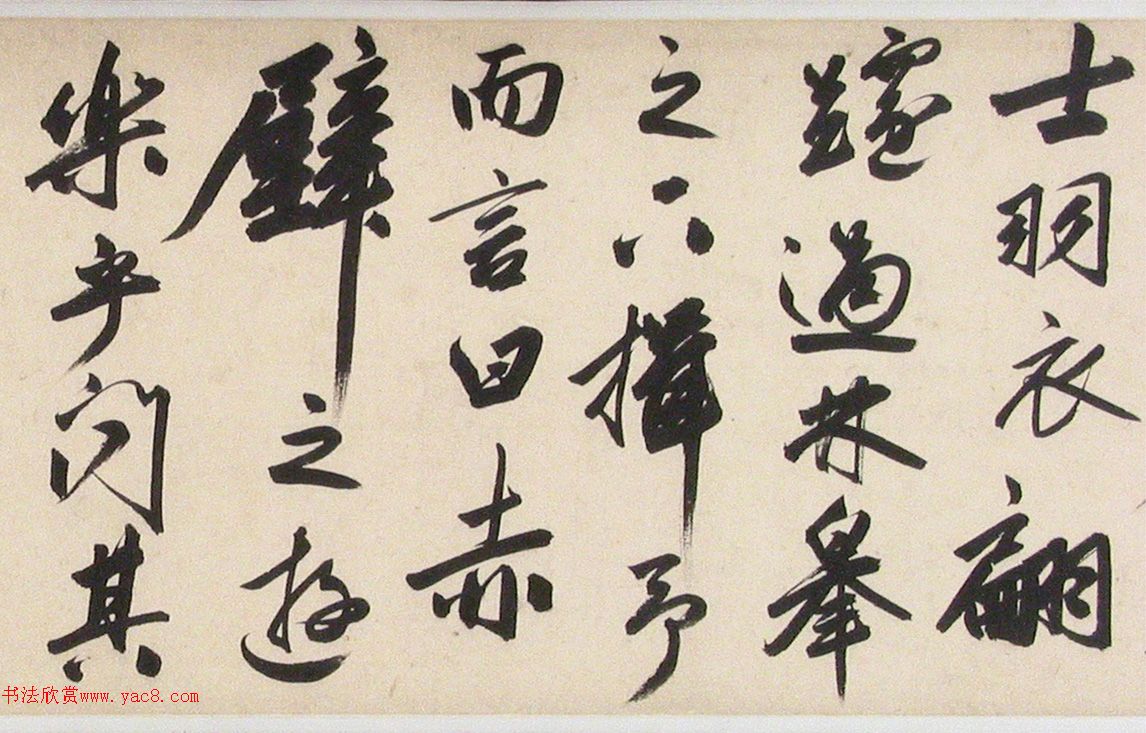 士羽衣翩
躚過林皋
之下揖予
而言曰赤
壁之遊
樂乎问其
书法欣赏www.yac8.com